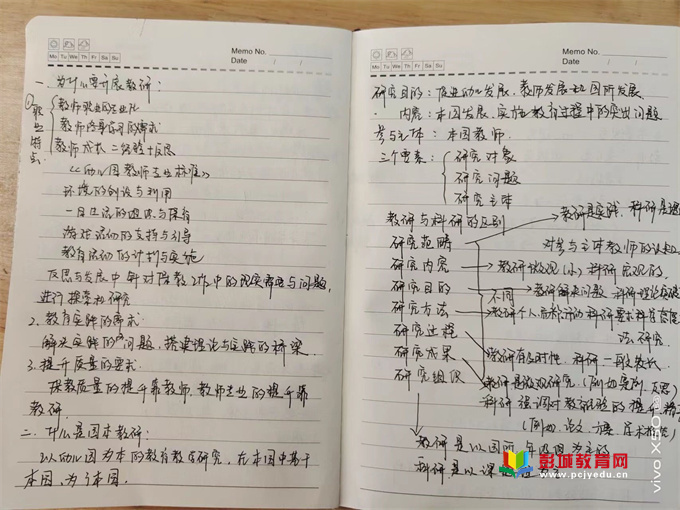 Memo No.
Mo Tu We Th Fr Sa Su
Date / /
一、为什么要开展教研:
①职业特点
教师职业的专业化
教师终身学习的需求
教师成长=经验+反思
《幼儿园教师专业标准》
环境的创设与利用
一日生活的组织与保育
游戏活动的支持与引导
教育活动的计划与实施
反思与发展中针对保教工作中的现实需要与问题,
进行探索和研究
2. 教育实践的需求:
解决实践的问题,搭建理论与实践的桥梁.
3. 提升质量的要求:
保教质量的提升靠教师,教师专业的提升靠
教研.
二、什么是园本教研:
以幼儿园为本的教育教学研究,在本园中基于
本园,为了本园.
Memo No.
Mo Tu We Th Fr Sa Su
Date / /
研究目的:促进幼儿发展、教师发展和园所发展
内容:本园发展、实施教育过程中的突出问题
参与主体:本园教师.
三个要素:
研究对象
研究问题
研究主体
教研与科研的区别
教研是实践,科研是
研究范畴
对参与主体教师的
研究内容
教研微观(小)科研宏观的.
研究目的
不同
教研解决问题,科研理论
研究方法
教研个人
科研要求科学
法研究.
研究过程
教研有即时性,科研一般较长.
研究成果
教研是微观研究(例如案例、反思)
研究组织
科研强调对教育经验的提升
(例如:论文、方案、学术报告)
教研是以园所、年级组为主的
科研是以课题
彭城教育网
www.pcjyedu.cn
vivo X50